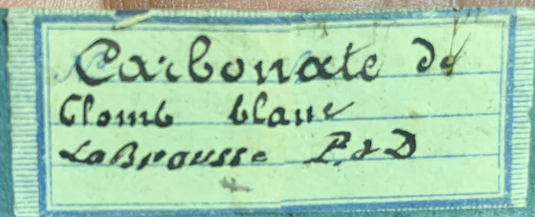 Carbonate de
Plomb blanc
LaBrousse P. d D